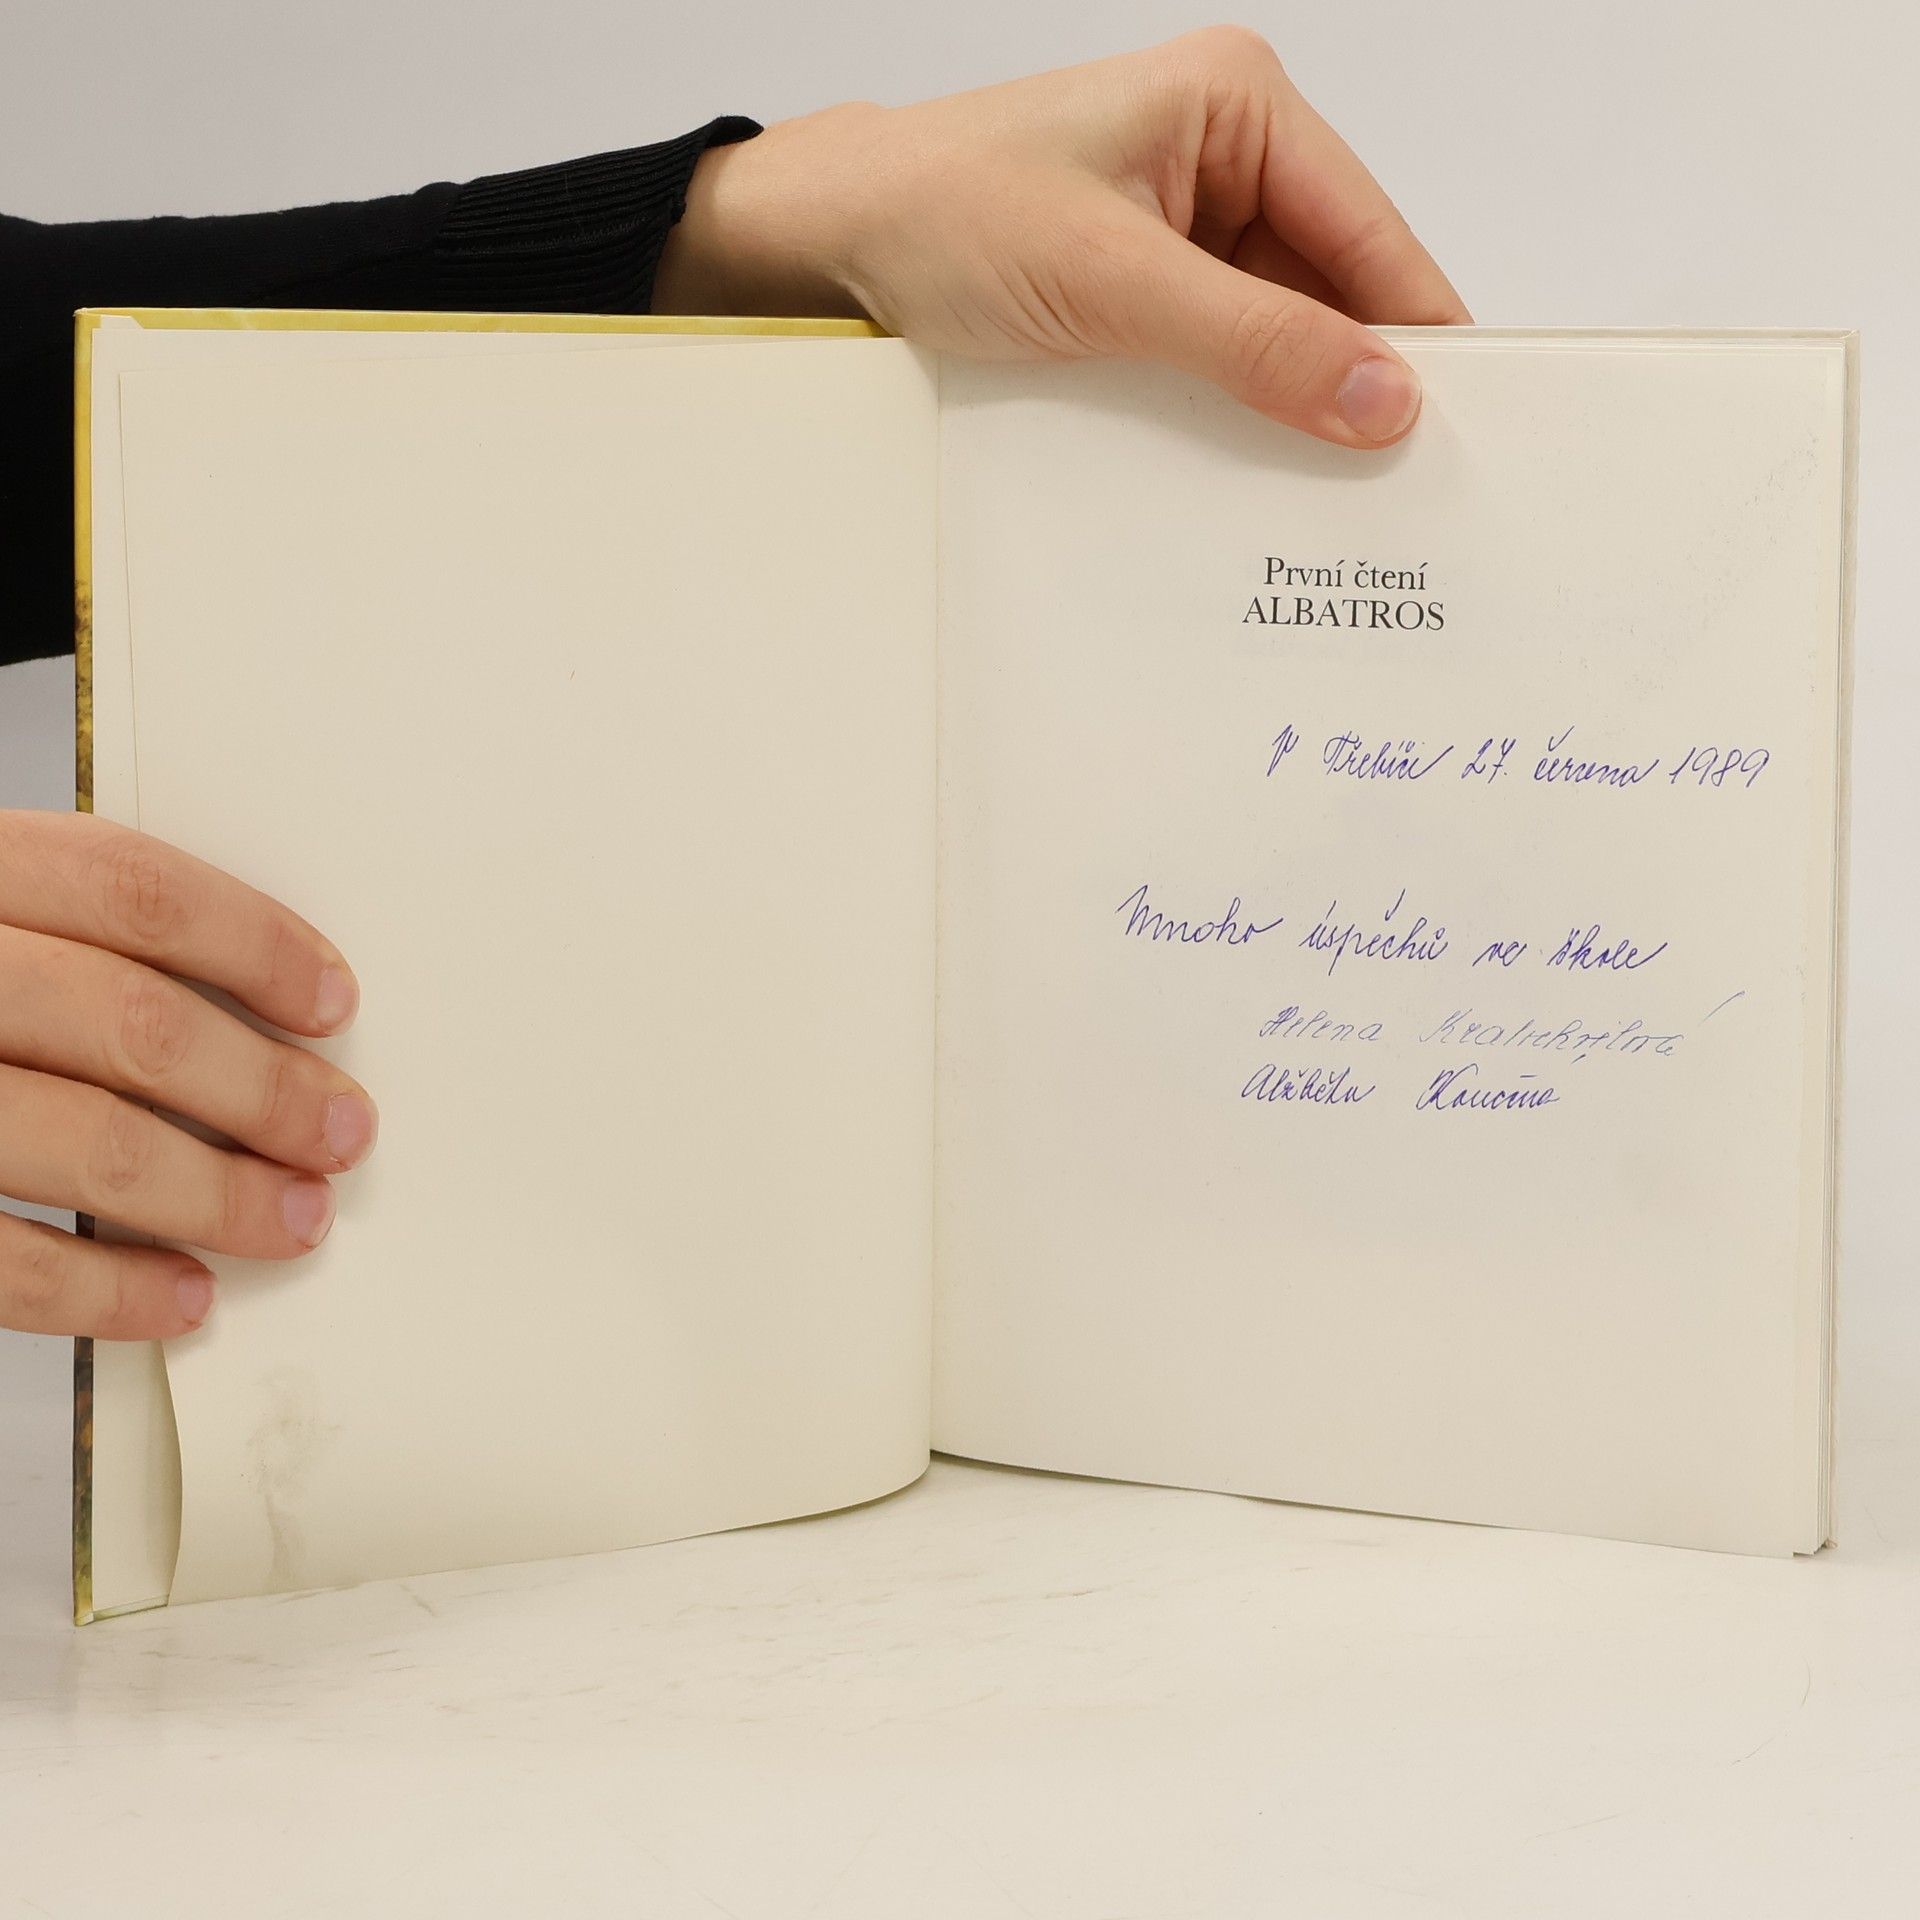 První čtení
ALBATROS
V Třebíči 27. června 1989
Mnoho úspěchů ve škole
Helena
Alžběta